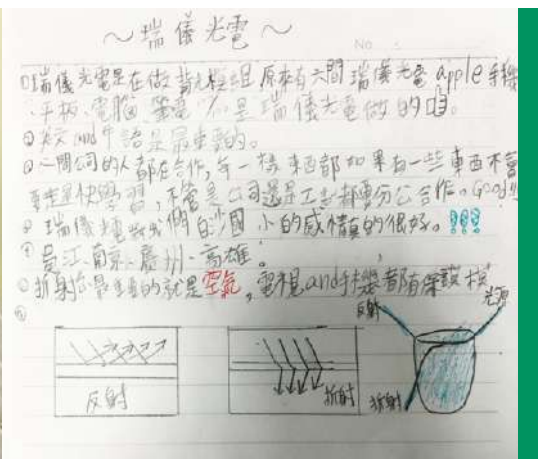 ～瑞儀光電～
No
①瑞儀光電是在做背光模組原來有六間瑞儀光電apple手機
、平板、電腦、筆電 瑞儀光電做的。
②英文and中語是最重要的。
③一間公司的人都在合作,每一樣東西都如果有一些東西不會
要趕快學習,不管是公司還是工廠都要分公合作。Good!!
瑞儀光電 我們的 國小的感情真的很好。!!!
吳江、南京、廣州、高雄。
⑥折射 最重要的就是空氣,電視and手機都有保護模
反射
光源
反射
折射
折射